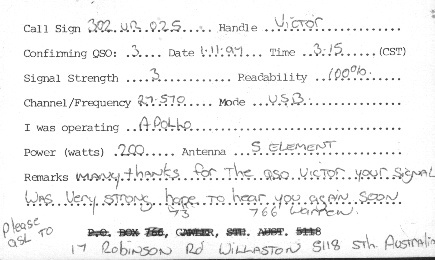 Call Sign 302 UR 025 Handle VICTOR
Confirming QSO: 3 Date 1.11.97 Time 3.15 (CST)
Signal Strength 3 Readability 100%
Channel/Frequency 27.570 Mode U.S.B
I was operating APOLLO
Power (watts) 200 Antenna 5 ELEMENT
Remarks MANY THANKS FOR THE QSO VICTOR YOUR SIGNAL
WAS VERY STRONG HOPE TO HEAR YOU AGAIN SOON
73 766 WARREN.
please QSL TO
P.O. BOX 766, GAWLER, STH. AUST. 5118
17 ROBINSON RD WILLASTON 5118 STH. AUSTRALIA